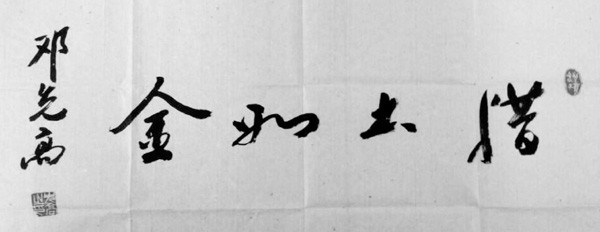 惜土如金
邓先高